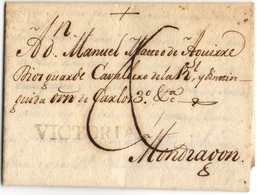 A Dn. Manuel Mateo de Aguirre
guarde Cavallero de la Rl. y Distin
guida orn de Carlos 3o. &a.
VICTORIA
Mondragon.